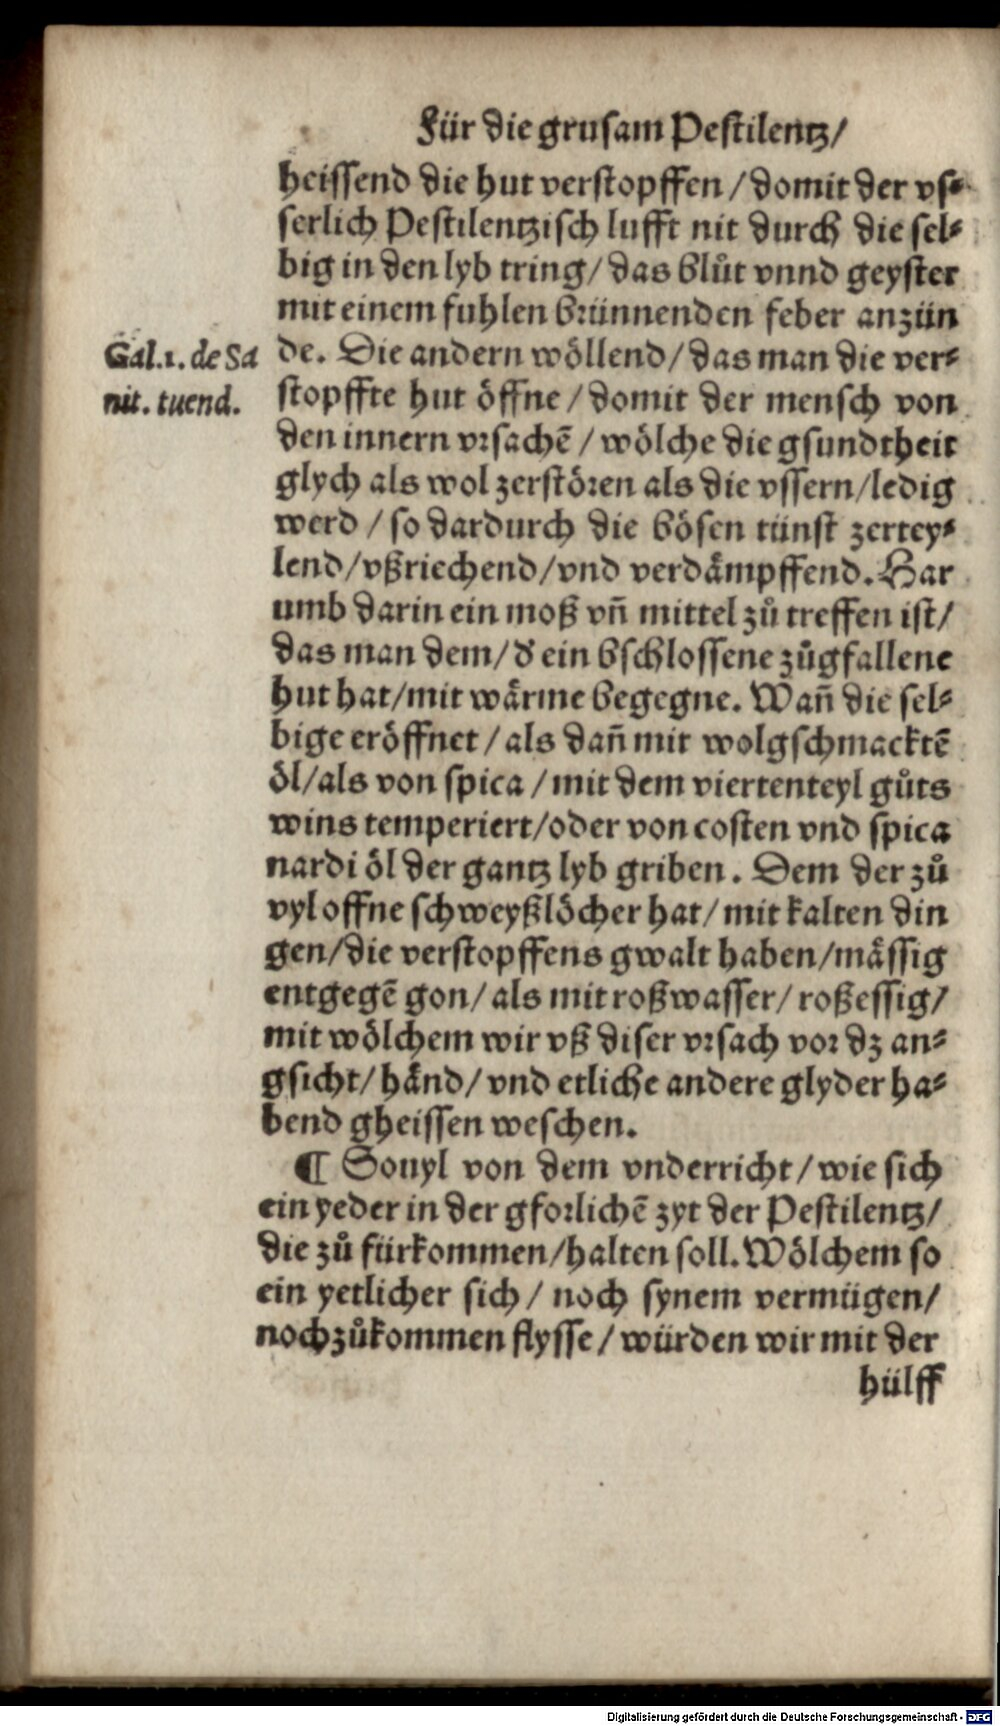 Für die grusam Pestilentz/
heissend die hut verstopffen/domit der vs⸗
serlich Pestilentzisch lufft nit durch die sel⸗
big in den lyb tring/das blůt vnnd geyster
mit einem fuhlen brünnenden feber anzün
de. Die andern wöllend/das man die ver⸗
stopffte hut öffne/domit der mensch von
den innern vrsachē/wölche die gsundtheit
glych als wol zerstören als die vssern/ledig
werd/so dardurch die bösen tünst zertey⸗
lend/vßriechend/vnd verdåmpffend. Har
umb darin ein moß vñ mittel zů treffen ist/
das man dem/d' ein bschlossene zůgfallene
hut hat/mit wårme begegne. Wañ die sel⸗
bige eröffnet/als dañ mit wolgschmacktē
öl/als von spica/mit dem viertenteyl gůts
wins temperiert/oder von costen vnd spica
nardi öl der gantz lyb griben. Dem der zů
vyl offne schweyßlöcher hat/mit kalten din
gen/die verstopffens gwalt haben/måssig
entgegē gon/als mit roßwasser/roßessig/
mit wölchem wir vß diser vrsach vor dz an⸗
gsicht/hånd/vnd etliche andere glyder ha⸗
bend gheissen weschen.
¶ Souyl von dem vnderricht/wie sich
ein yeder in der gforlichē zyt der Pestilentz/
die zů fürkommen/halten soll. Wölchem so
ein yetlicher sich/noch synem vermügen/
noch zůkommen flysse/würden wir mit der
hülff
Gal.1. de Sa
nit. tuend.
Digitalisierung gefördert durch die Deutsche Forschungsgemeinschaft - DFG